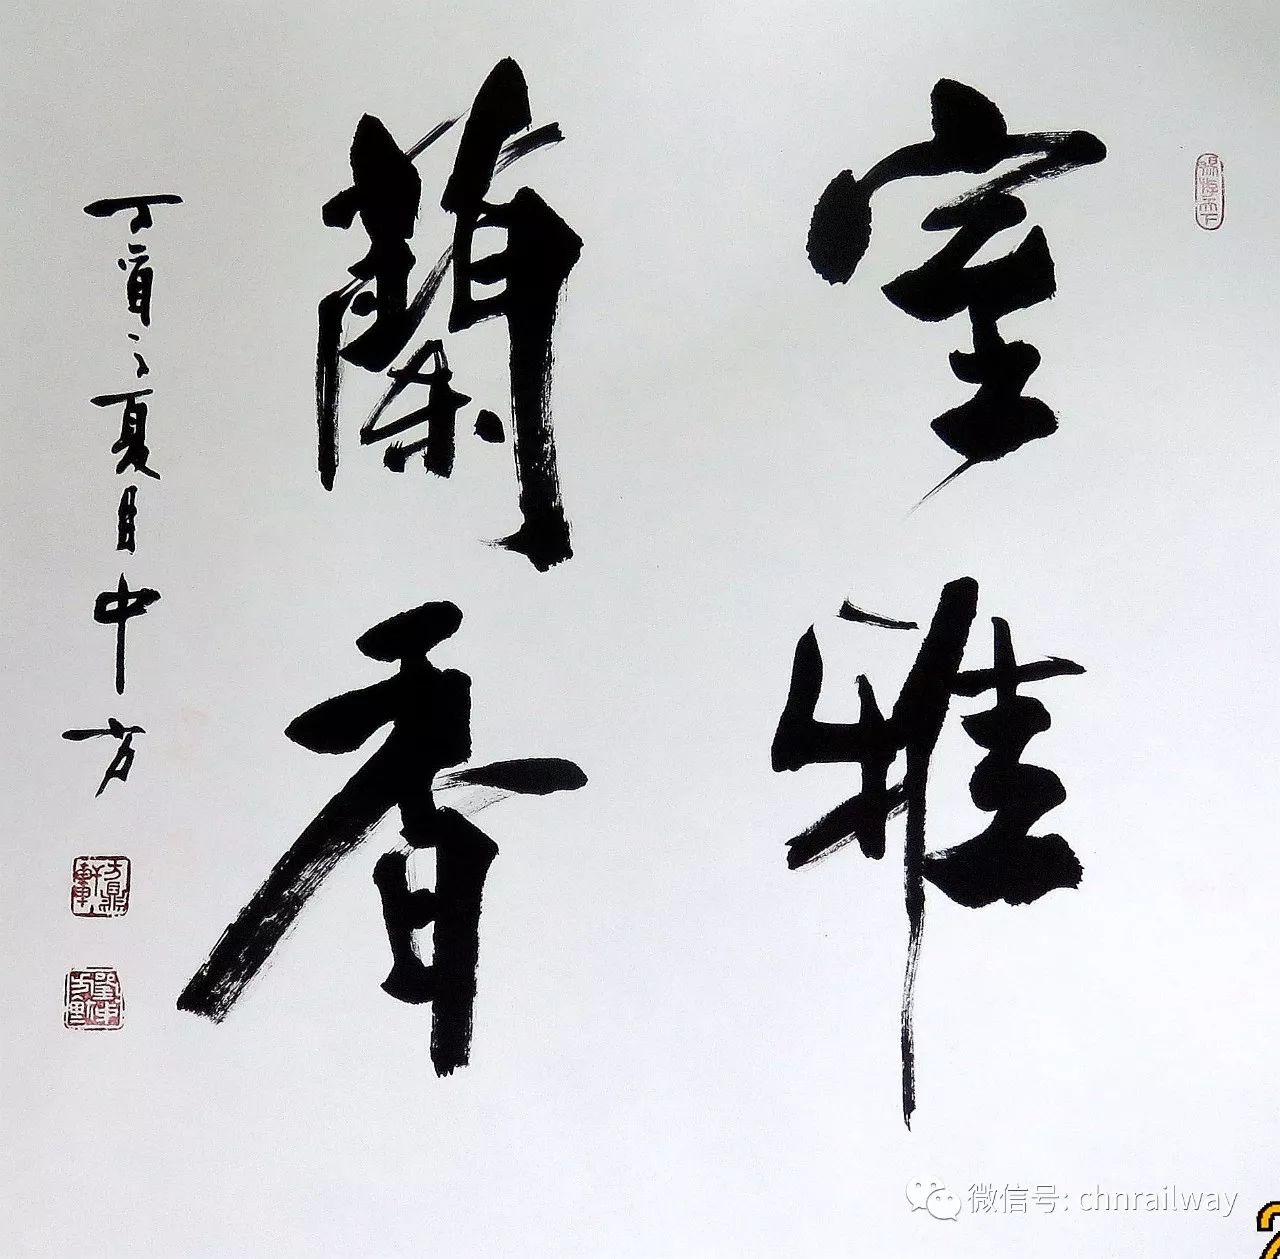 室雅
蘭香
丁酉之夏月中方
方鼎軒
微信号: chnrailway